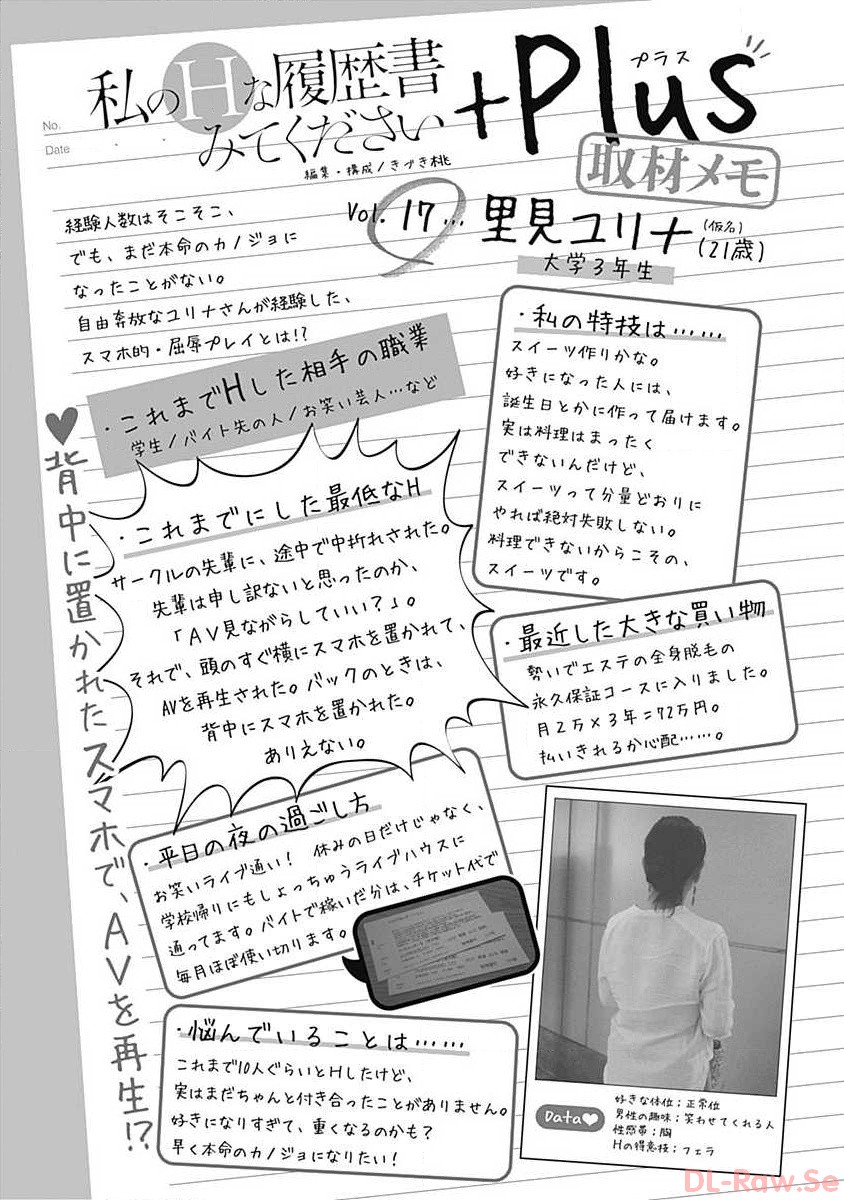 No.
Date
私のHな履歴書
みてください
+Plus
プラス
編集・構成/きづき桃
取材メモ
Vol. 17…
里見ユリナ
(仮名)
(21歳)
大学3年生
経験人数はそこそこ、
でも、まだ本命のカノジョに
なったことがない。
自由奔放なユリナさんが経験した、
スマホ的・屈辱プレイとは!?
・これまでHした相手の職業
学生/バイト先の人/お笑い芸人…など
・私の特技は……
スイーツ作りかな。
好きになった人には、
誕生日とかに作って届けます。
実は料理はまったく
できないんだけど、
スイーツって分量どおりに
やれば絶対失敗しない。
料理できないからこその、
スイーツです。
♥背中に置かれたスマホで、AVを再生!?
・これまでにした最低なH
サークルの先輩に、途中で中折れされた。
先輩は申し訳ないと思ったのか、
「AV見ながらしていい?」。
それで、頭のすぐ横にスマホを置かれて、
AVを再生された。バックのときは、
背中にスマホを置かれた。
ありえない。
・最近した大きな買い物
勢いでエステの全身脱毛の
永久保証コースに入りました。
月2万×3年=72万円。
払いきれるか心配……。
・平日の夜の過ごし方
お笑いライブ通い! 休みの日だけじゃなく、
学校帰りにもしょっちゅうライブハウスに
通ってます。バイトで稼いだ分は、チケット代で
毎月ほぼ使い切ります。
・悩んでいることは……
これまで10人ぐらいとHしたけど、
実はまだちゃんと付き合ったことがありません。
好きになりすぎて、重くなるのかも?
早く本命のカノジョになりたい!
Data♥
好きな体位;正常位
男性の趣味;笑わせてくれる人
性感帯;胸
Hの得意技;フェラ
DL-Raw.Se